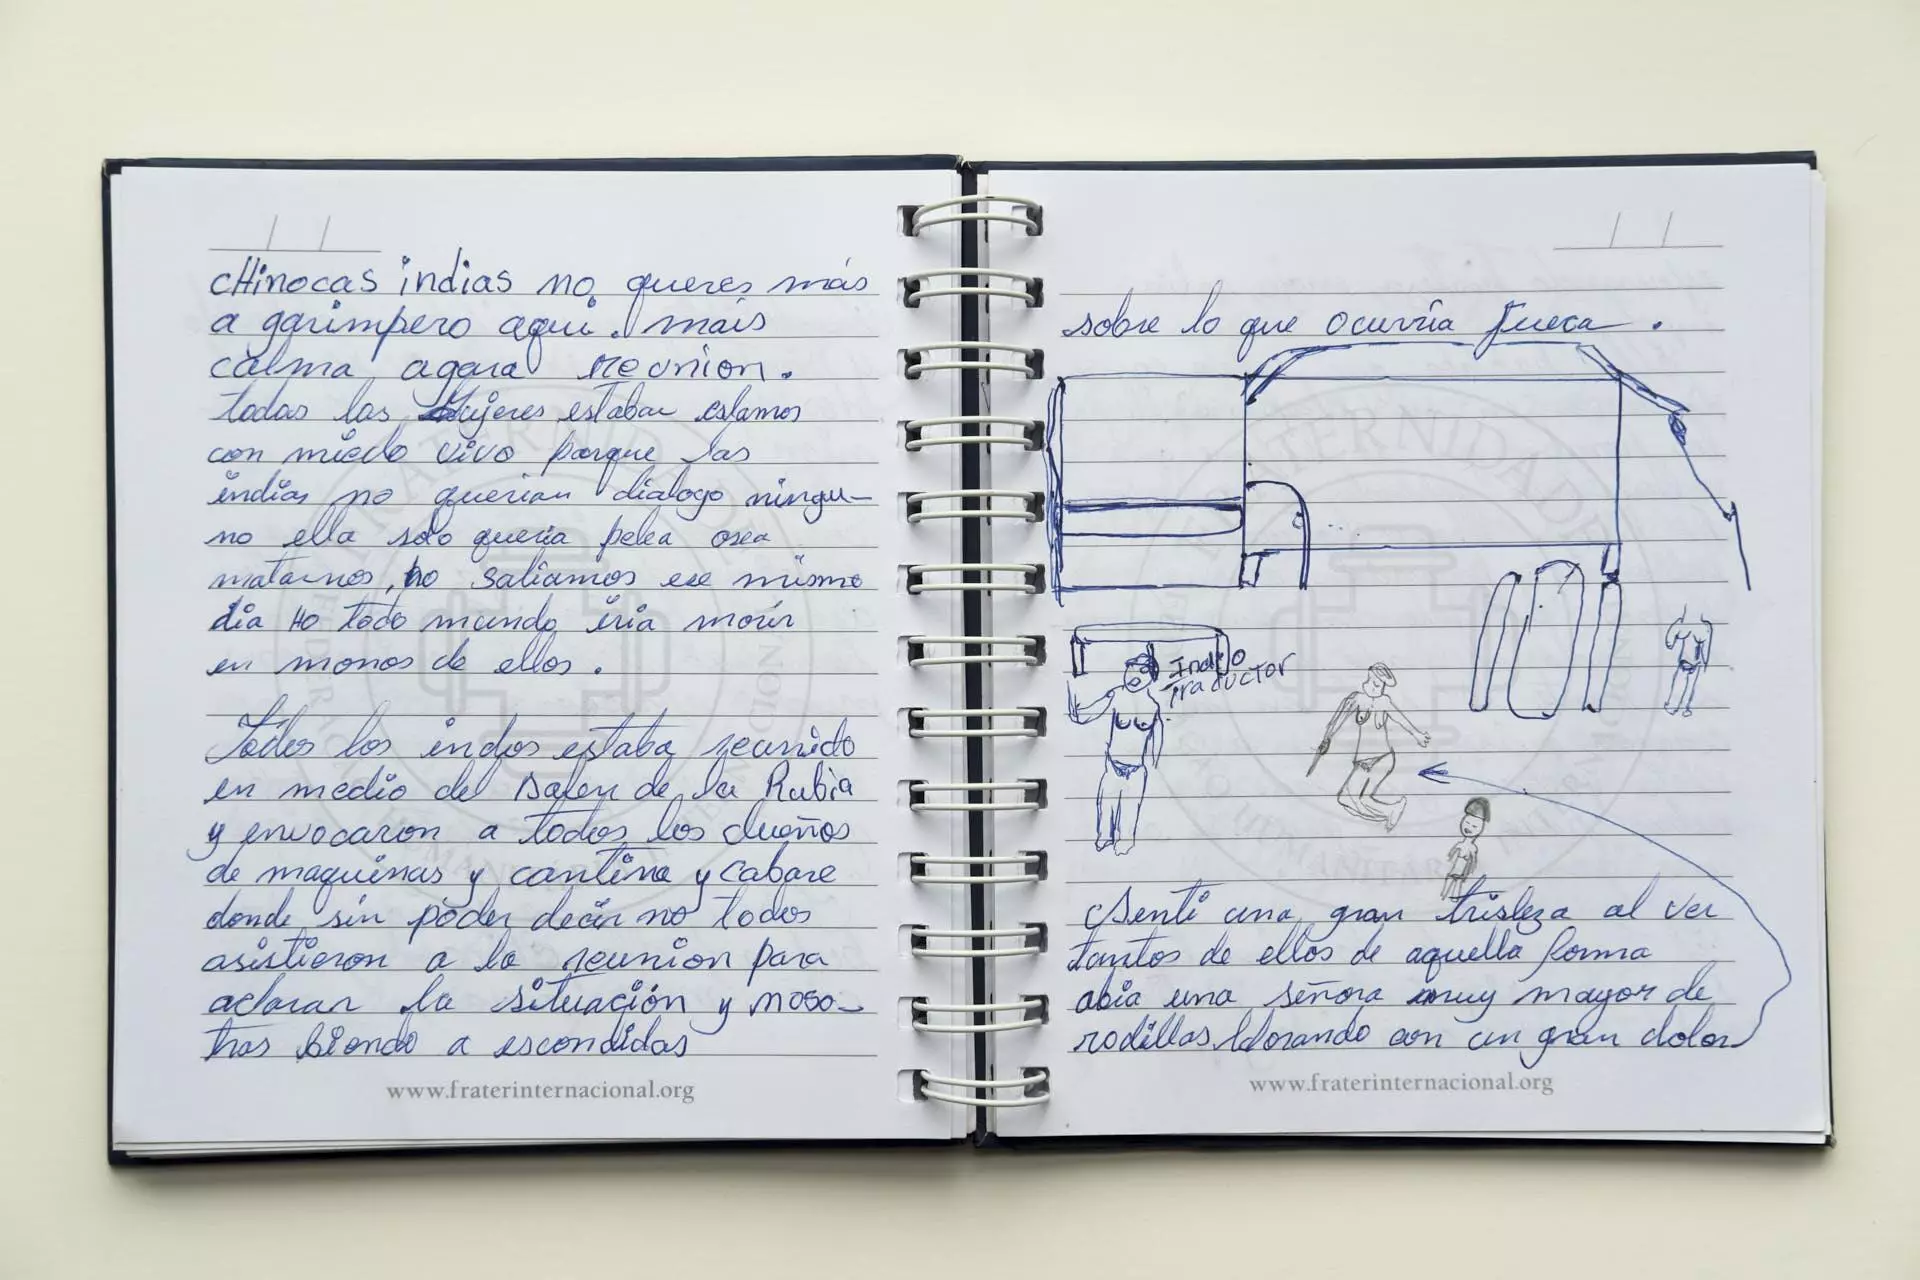 cHinocas indias no queres más
a garimpero aqui. mais
calma agara reunion.
todas las Mujeres estaban estamos
con miedo vivo porque las
indias no querian dialogo ningu-
no ella solo queria pelea osea
matarnos, no saliamos ese mismo
dia Ho todo mundo iria morir
en monos de ellos.
Todos los indos estaba reunido
en medio del salon de la Rubia
y envocaron a todos los dueños
de maquinas y cantina y cabare
donde sin poder decir no todos
asistieron a la reunion para
aclarar la situación y noso-
tras biendo a escondidas
www.fraterinternacional.org
sobre lo que ocurria fueea.
Indio
traductor
Senti una gran tristeza al ver
tantos de ellos de aquella forma
abia una señora muy mayor de
rodillas llorando con un gran dolor
www.fraterinternacional.org